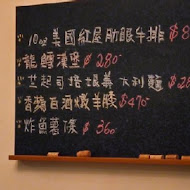 10oz 美國紅屋肋眼牛排 $8
龍鱈漢堡 $280
芝起司培根義大利麵 $2
香梅白酒燉羊膝 $470
炸魚薯條 $360